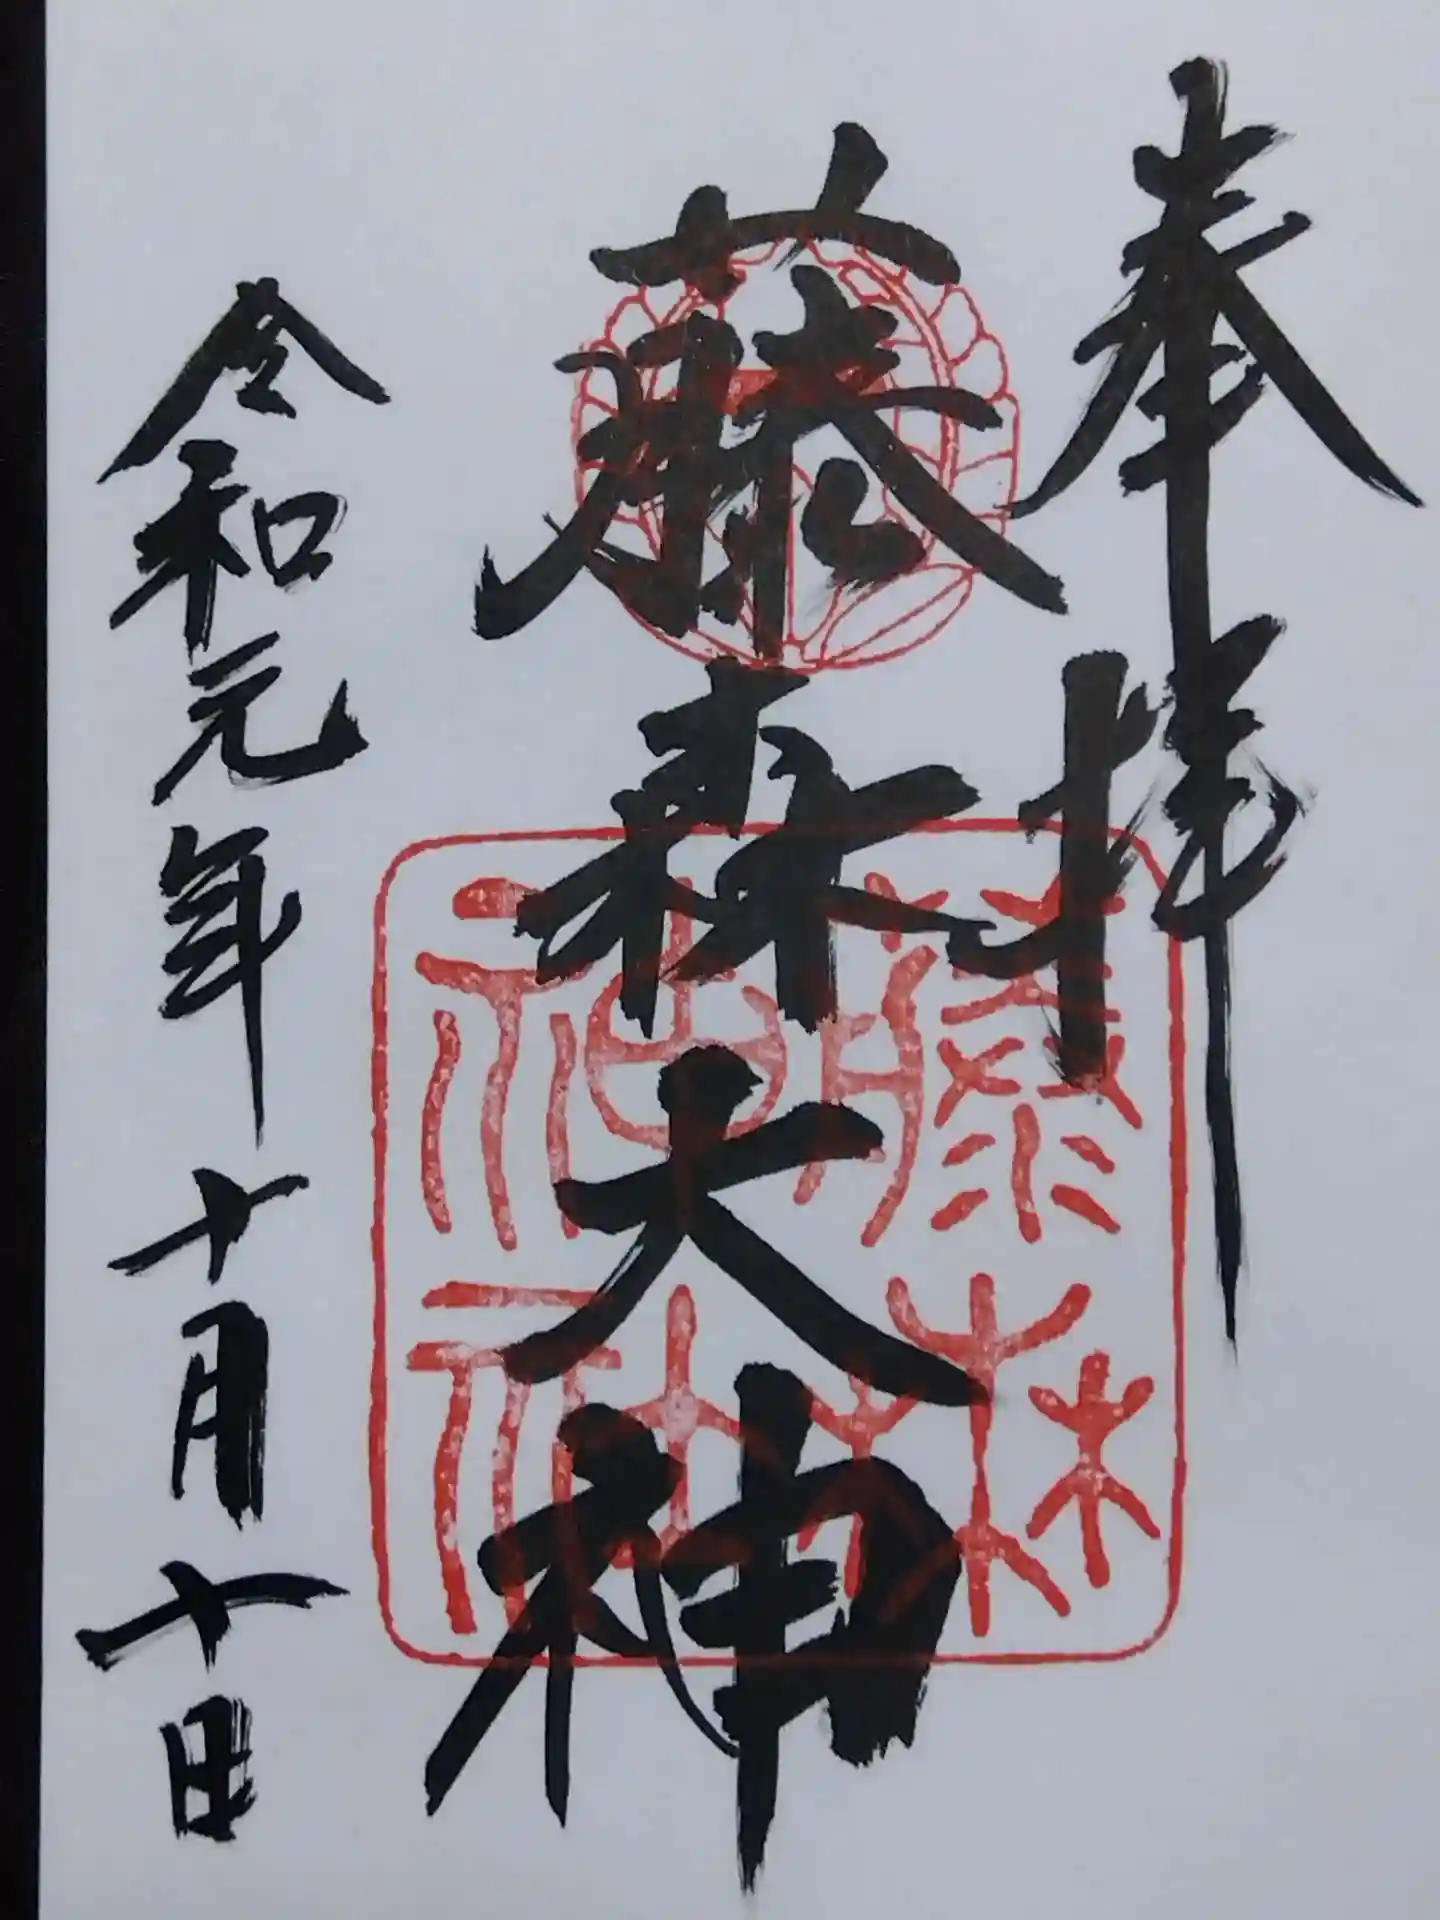 奉拝
藤森大神
藤森神社
令和元年十月十日